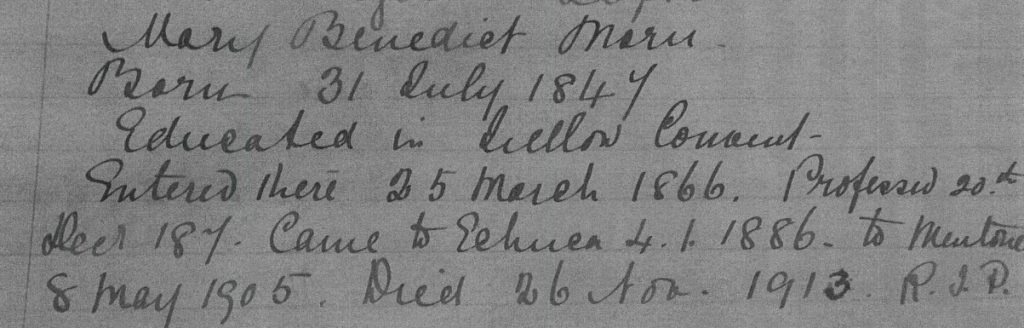 Mary Benedict Moru
Born 31 July 1847
Educated in Convent -
Entered there 25 March 1866. Professed 20.th
Decr 187. Came to Echuca 4.1.1886 - to Mentone
8 May 1905. Died 26 Nov. 1913. R.I.P.